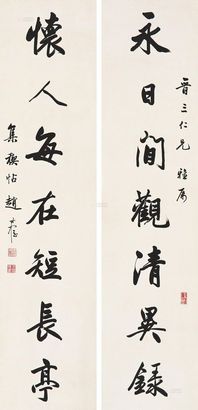 晋三仁兄雅属
永日間觀清異録
懷人每在短長亭
集禊帖趙